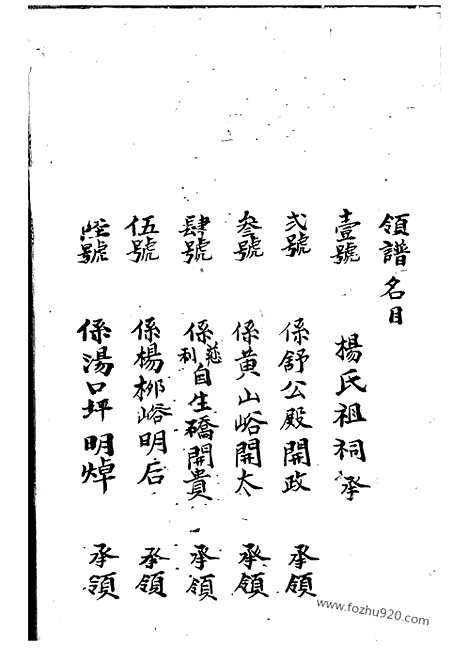 領譜名目
壹號 楊氏祖祠承
弍號 係舒公殿開政 承領
叄號 係黄山峪開太 承領
肆號 係慈利自生礄開貴 承領
伍號 係楊柳峪明后 承領
號 係湯口坪明焯 承領
www.fozhu920.com